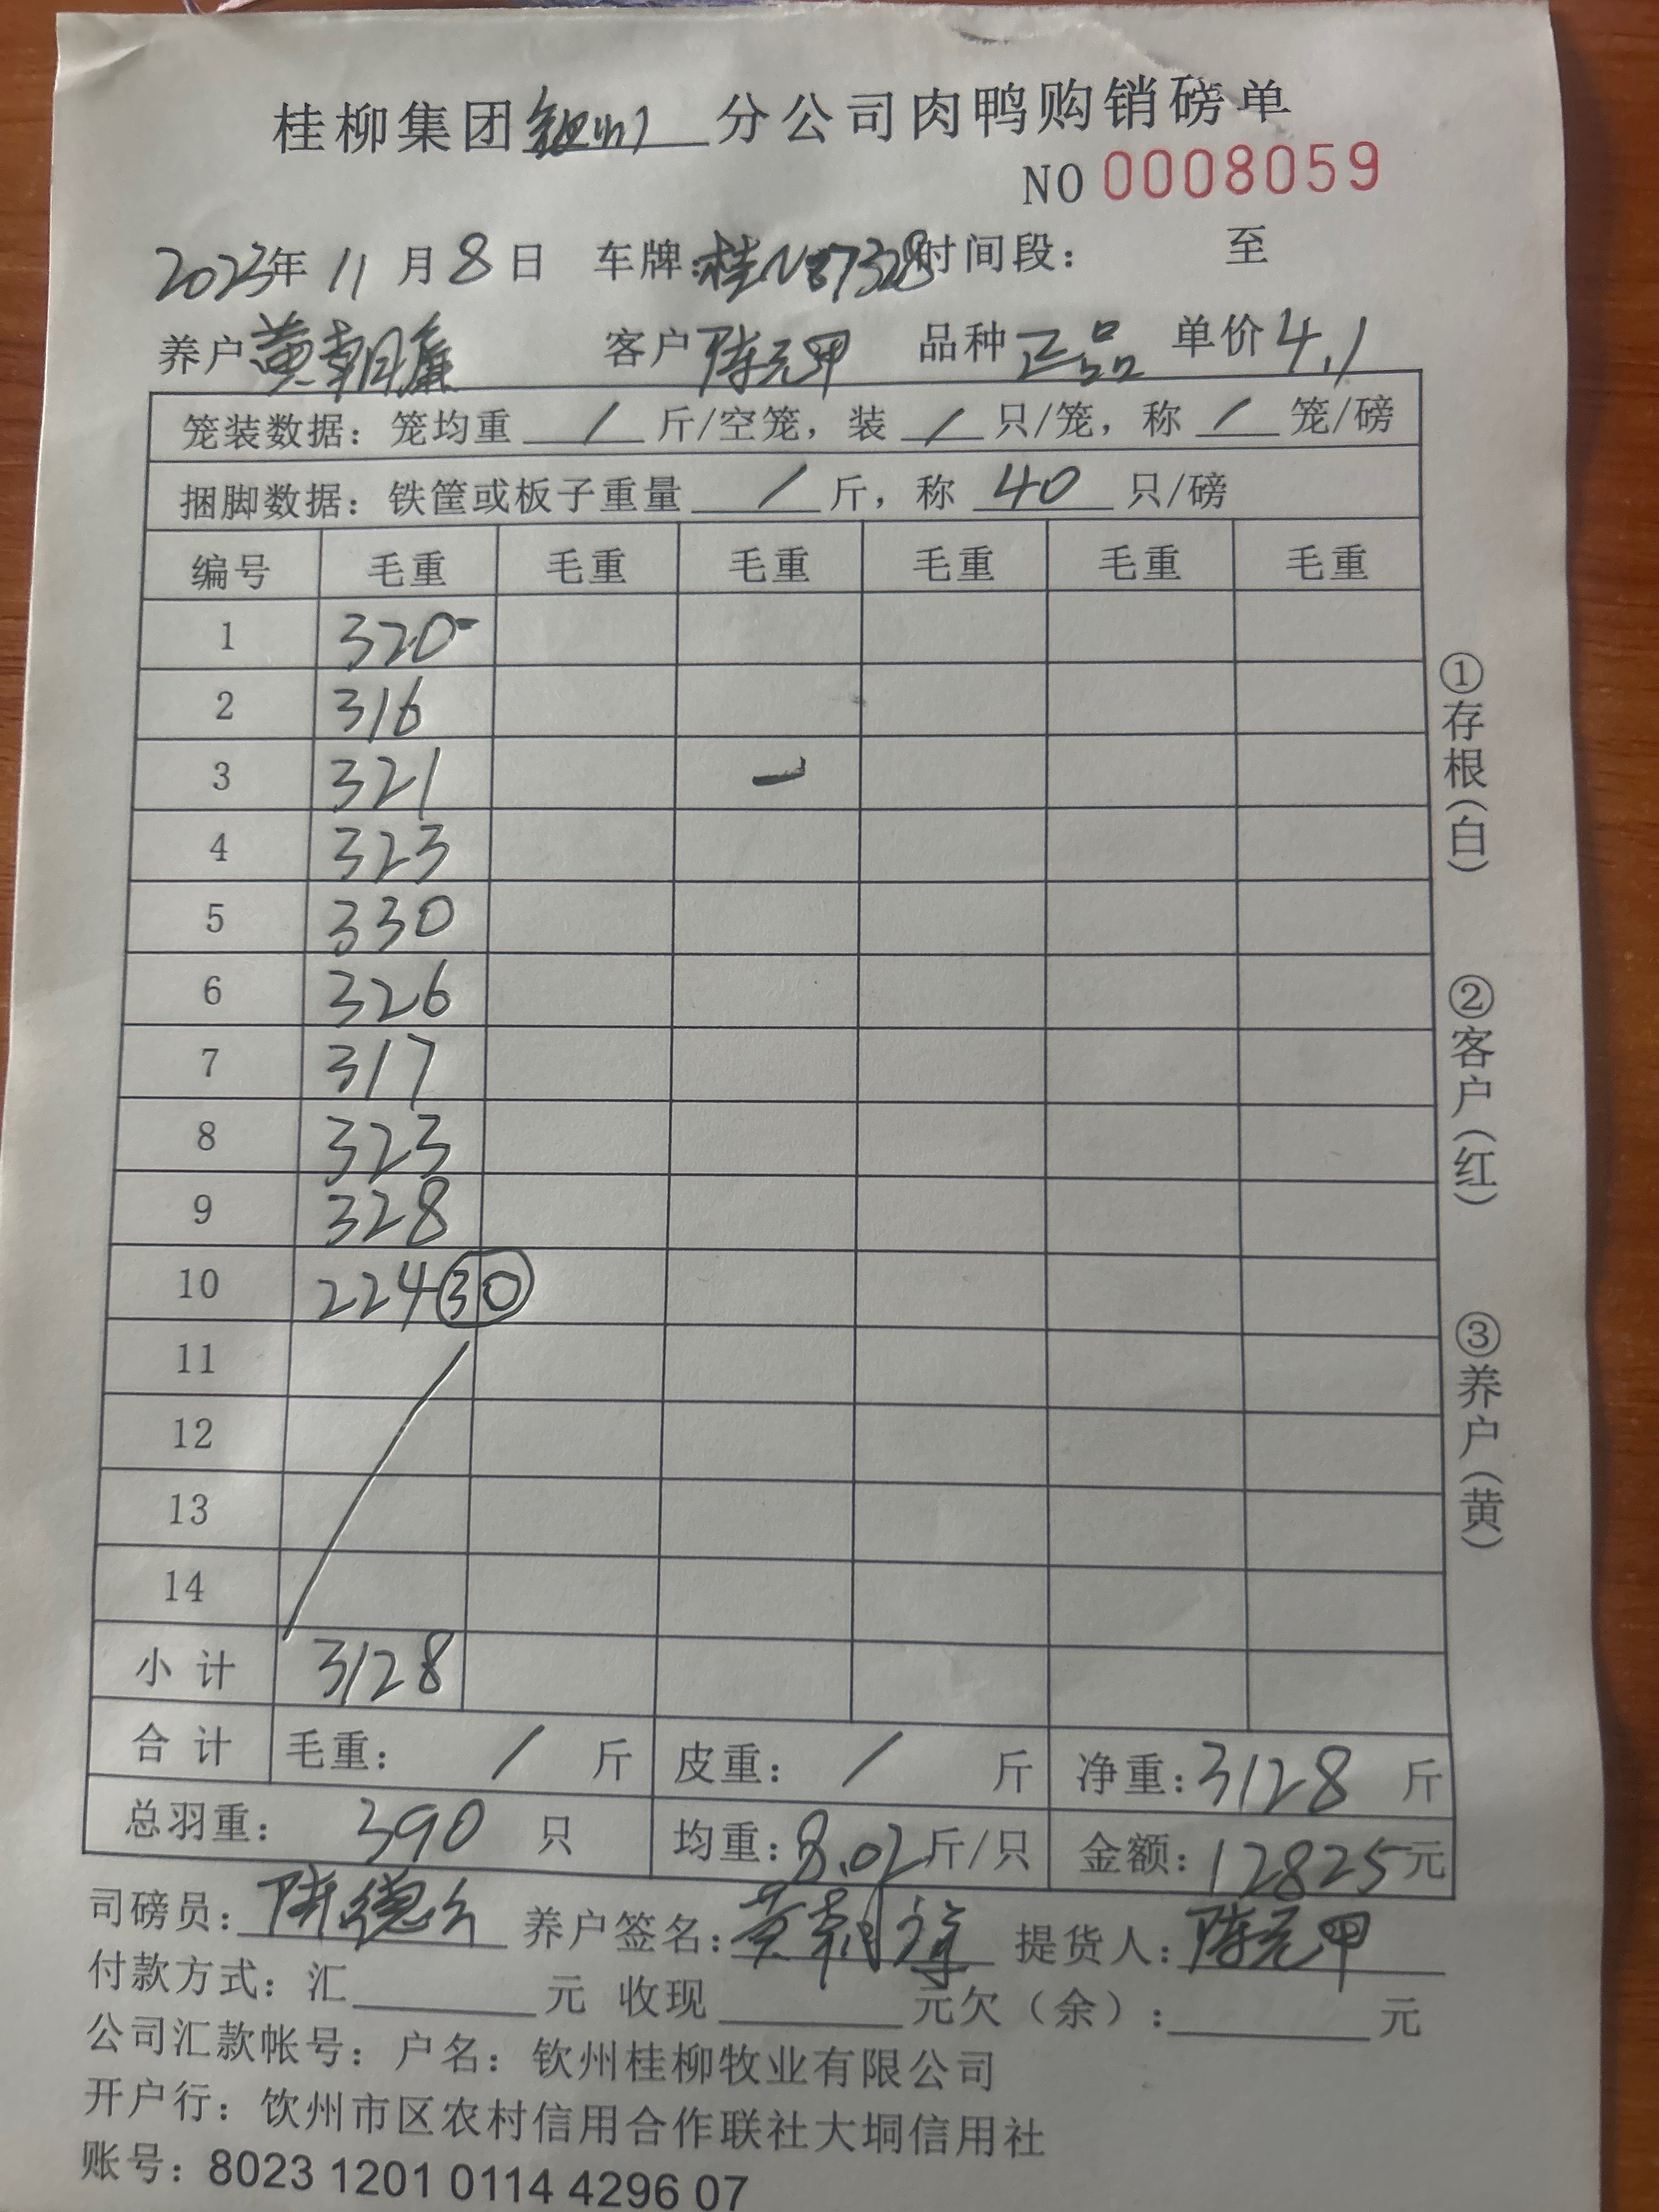 桂柳集团钦州分公司肉鸭购销磅单
NO 0008059
2023年 11 月 8 日 车牌:桂N87328时间段: 至
养户 黄朝 客户 陈元甲 品种 正品 单价 4.1
笼装数据: 笼均重 / 斤/空笼, 装 / 只/笼, 称 / 笼/磅
捆脚数据: 铁筐或板子重量 / 斤, 称 40 只/磅
编号 毛重 毛重 毛重 毛重 毛重 毛重
1 320
2 316
3 321 一
4 323
5 330
6 326
7 317
8 323
9 328
10 224 30
11
12
13
14
小计 3128
合计 毛重: / 斤 皮重: / 斤 净重: 3128 斤
总羽重: 390 只 均重: 8.02 斤/只 金额: 12825元
司磅员: 养户签名: 黄朝 提货人: 陈元甲
付款方式: 汇 元 收现 元欠(余): 元
公司汇款帐号: 户名: 钦州桂柳牧业有限公司
开户行: 钦州市区农村信用合作联社大垌信用社
账号: 8023 1201 0114 4296 07
①存根(白)
②客户(红)
③养户(黄)